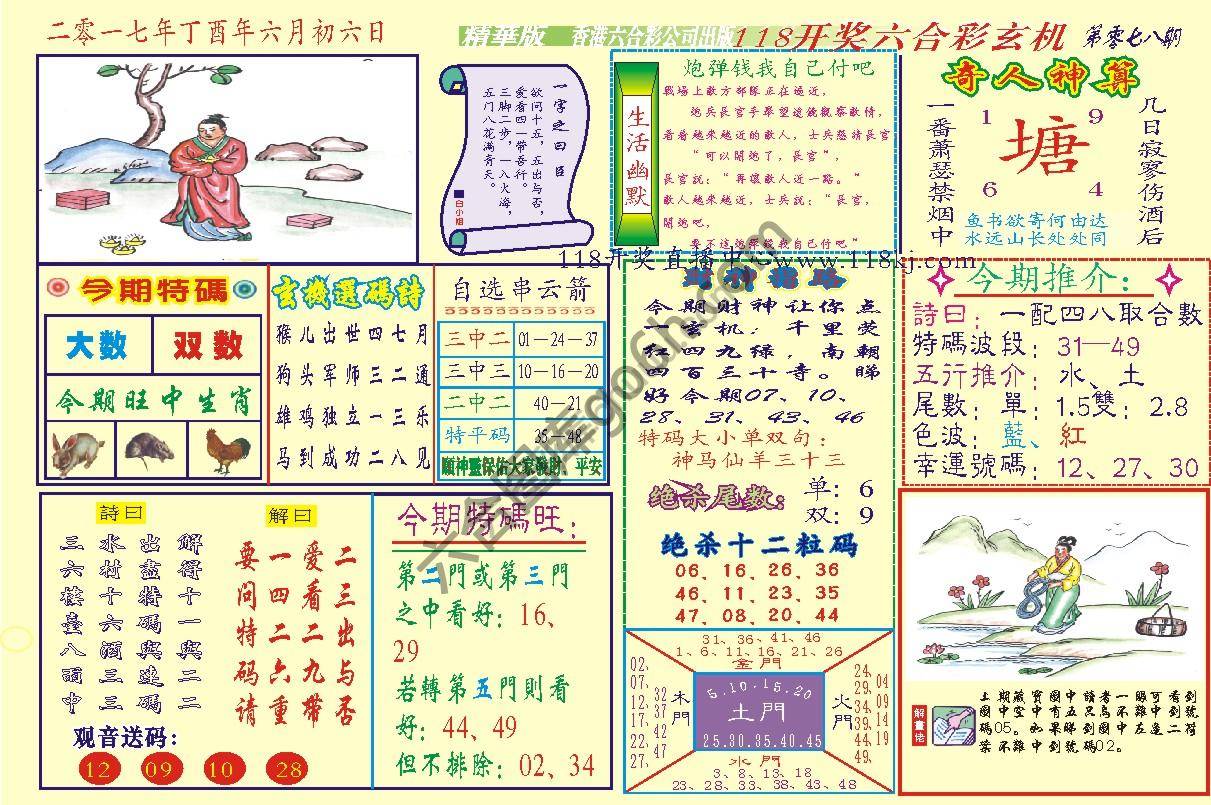 二零一七年丁酉年六月初六日
精華版 香港六合彩公司出版
118开奖六合彩玄机 第零七八期
一字之曰臣
欲问十五，五出与否，
爱看四一带吾行。
三脚二步，一八火海，
五门八花满青天。
白小姐
生活幽默
炮弹钱我自己付吧
戰場上敵方部隊正在逼近，
炮兵長官手舉望遠鏡觀察敵情，
看着越来越近的敵人，士兵懇請長官
“可以開炮了，長官”，
長官説：“再讓敵人近一路。”
敵人越来越近，士兵説：“長官，
開炮吧，
要不這炮彈钱我自己付吧”
奇人神算
一番萧瑟禁烟中
1 9
塘
6 4
几日寂寥伤酒后
鱼书欲寄何由达
水远山长处处同
118开奖直播中心www.118kj.com
今期特碼
大数 双数
今期旺中生肖
玄機選碼詩
猴儿出世四七月
狗头军师三二通
雄鸡独立一三乐
马到成功二八见
自选串云箭
三中二 01—24—37
三中三 10—16—20
二中二 40—21
特平码 35—48
願神靈保佑大家發財、平安
財神龍路
今期财神让你点
一玄机：千里荧
红四九绿，南朝
四百三十寺。睇
好今期07、10、
28、31、43、46
特码大小单双句：
神马仙羊三十三
绝杀尾数： 单：6
双：9
绝杀十二粒码
06、16、26、36
46、11、23、35
47、08、20、44
今期推介：
詩曰：一配四八取合數
特碼波段：31—49
五行推介：水、土
尾數：單：1.5雙：2.8
色波：藍、紅
幸運號碼：12、27、30
詩曰
解得十一與二
出盡特碼與速碼
水村十六酒三三
三六樓臺八面中
解曰
二三出与否
爱看二九带
一四二六重
要问特码请
观音送码：
12 09 10 28
今期特碼旺：
第二門或第三門
之中看好：16、
29
若轉第五門則看
好：44、49
但不排除：02、34
31、36、41、46
1、6、11、16、21、26
金門
02、07、12、17、22、27、
32、37、42、47
木門
5.10.15.20
土門
25.30.35.40.45
火門
24、29、34、39、44、49、
04、09、14、19
水門
3、8、13、18
23、28、33、38、43、48
解畫佬
上期藏寶圖中讀者一眼可看到
圖中空中有五只鳥不難中到號
碼05。如果睇到圖中左邊二荷
葉不難中到號碼02。
六合图库go6h.com